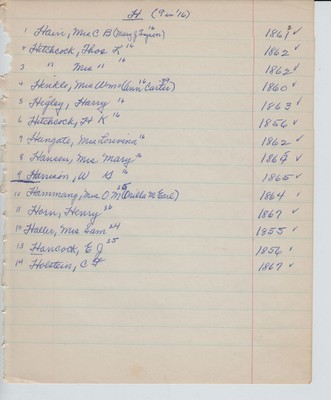 H. (9 en '16)
1 Hain, Mrs C B (Mary J Tyson) 16 1862 ✓
2 Hitchcock, Thos L 16 1862 ✓
3 " Mrs " 16 1862 ✓
4 Hinkle, Mrs Wm (Ann Carter) 16 1860 ✓
5 Higley, Harry 16 1863 ✓
6 Hitchcock, H K 16 1856 ✓
7 Hungate, Mrs Louvina 16 1862 ✓
8 Hansen, Mrs Mary 16 ✓
9 Harrison, W G 16 1865 ✓
10 Hammang, Mrs O M (Nilla M Earl) 25 1864
11 Horn, Henry 26 1867 ✓
12 Haller, Mrs Sam 24 1855 ✓
13 Hancock, E J 25 1856 ✓
14 Holstein, C 1867 ✓